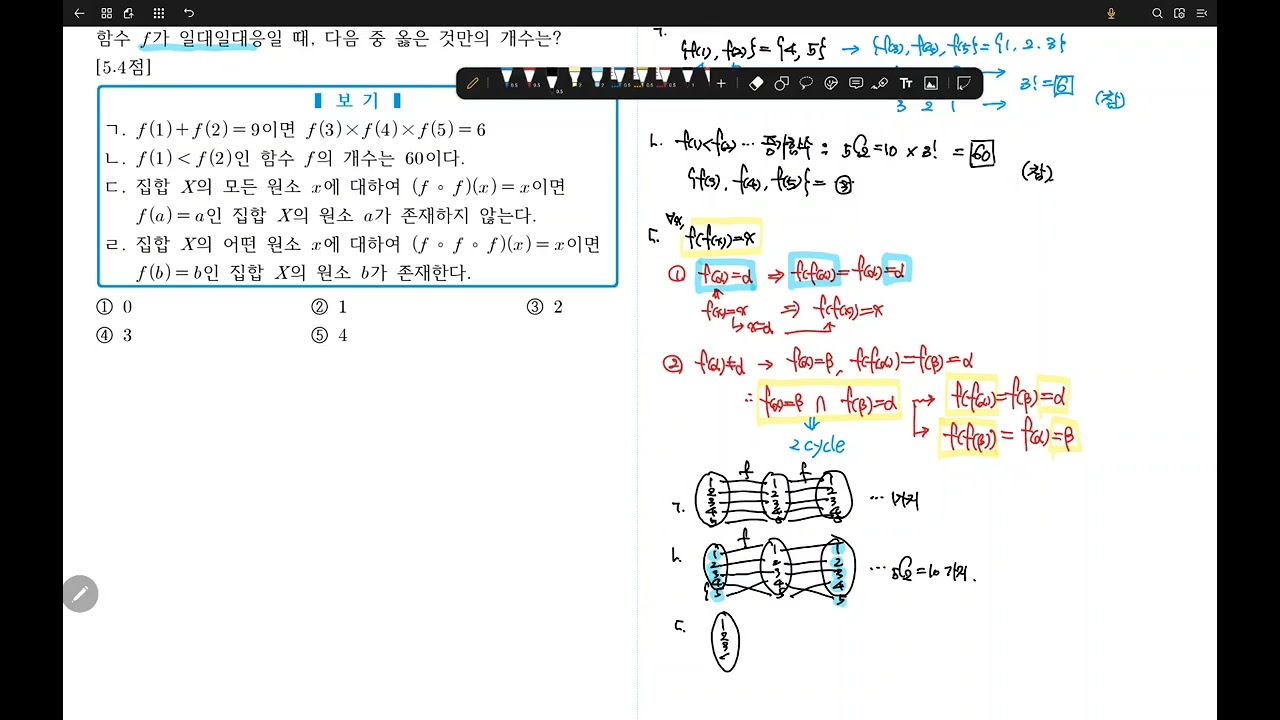 함수 f가 일대일대응일 때, 다음 중 옳은 것만의 개수는?
[5.4점]
보 기
ㄱ. f(1)+f(2)=9이면 f(3)×f(4)×f(5)=6
ㄴ. f(1)<f(2)인 함수 f의 개수는 60이다.
ㄷ. 집합 X의 모든 원소 x에 대하여 (f∘f)(x)=x이면
f(a)=a인 집합 X의 원소 a가 존재하지 않는다.
ㄹ. 집합 X의 어떤 원소 x에 대하여 (f∘f∘f)(x)=x이면
f(b)=b인 집합 X의 원소 b가 존재한다.
① 0 ② 1 ③ 2
④ 3 ⑤ 4
ㄱ.
{f(1), f(2)}={4, 5} → {f(3), f(4), f(5)}={1, 2, 3}
3!=6
3 2 1 → (참)
ㄴ. f(1)<f(2) ⋯ : 5C2=10 × 3! = 60
{f(3), f(4), f(5)}= ③ (참)
ㄷ. ∀x, f(f(x))=x
① f(α)=α ⇒ f(f(α))=f(α)=α
f(x)=x ⇒ f(f(x))=x
↳ x=α
② f(α)≠α → f(α)=β, f(f(α))=f(β)=α
∴ f(α)=β ∩ f(β)=α → f(f(α))=f(β)=α
→ f(f(β))=f(α)=β
⇓
2 cycle
f f
ㄱ. 1 2 3 4 5 1 2 3 4 5 1 2 3 4 5 ⋯ 1가지
f
ㄴ. 1 2 3 4 5 1 2 3 4 5 1 2 3 4 5 ⋯ 5C2=10가지.
ㄷ. 1 2 3
Tt